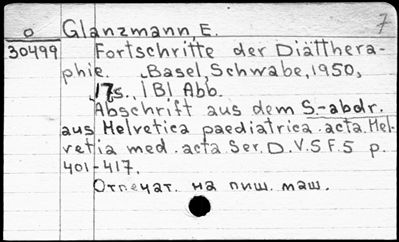 o Glanzmann, E. 7
30499 Fortschritte der Diätthera-
phie. Basel, Schwabe, 1950,
17s. 1 Bl Abb.
Abschrift aus dem S.-abdr.
aus Helvetica paediatrica acta. Hel-
vetia med. acta Ser. D. V. 5 F. 5 p.
401-417.
Отпечат. на пиш. маш.